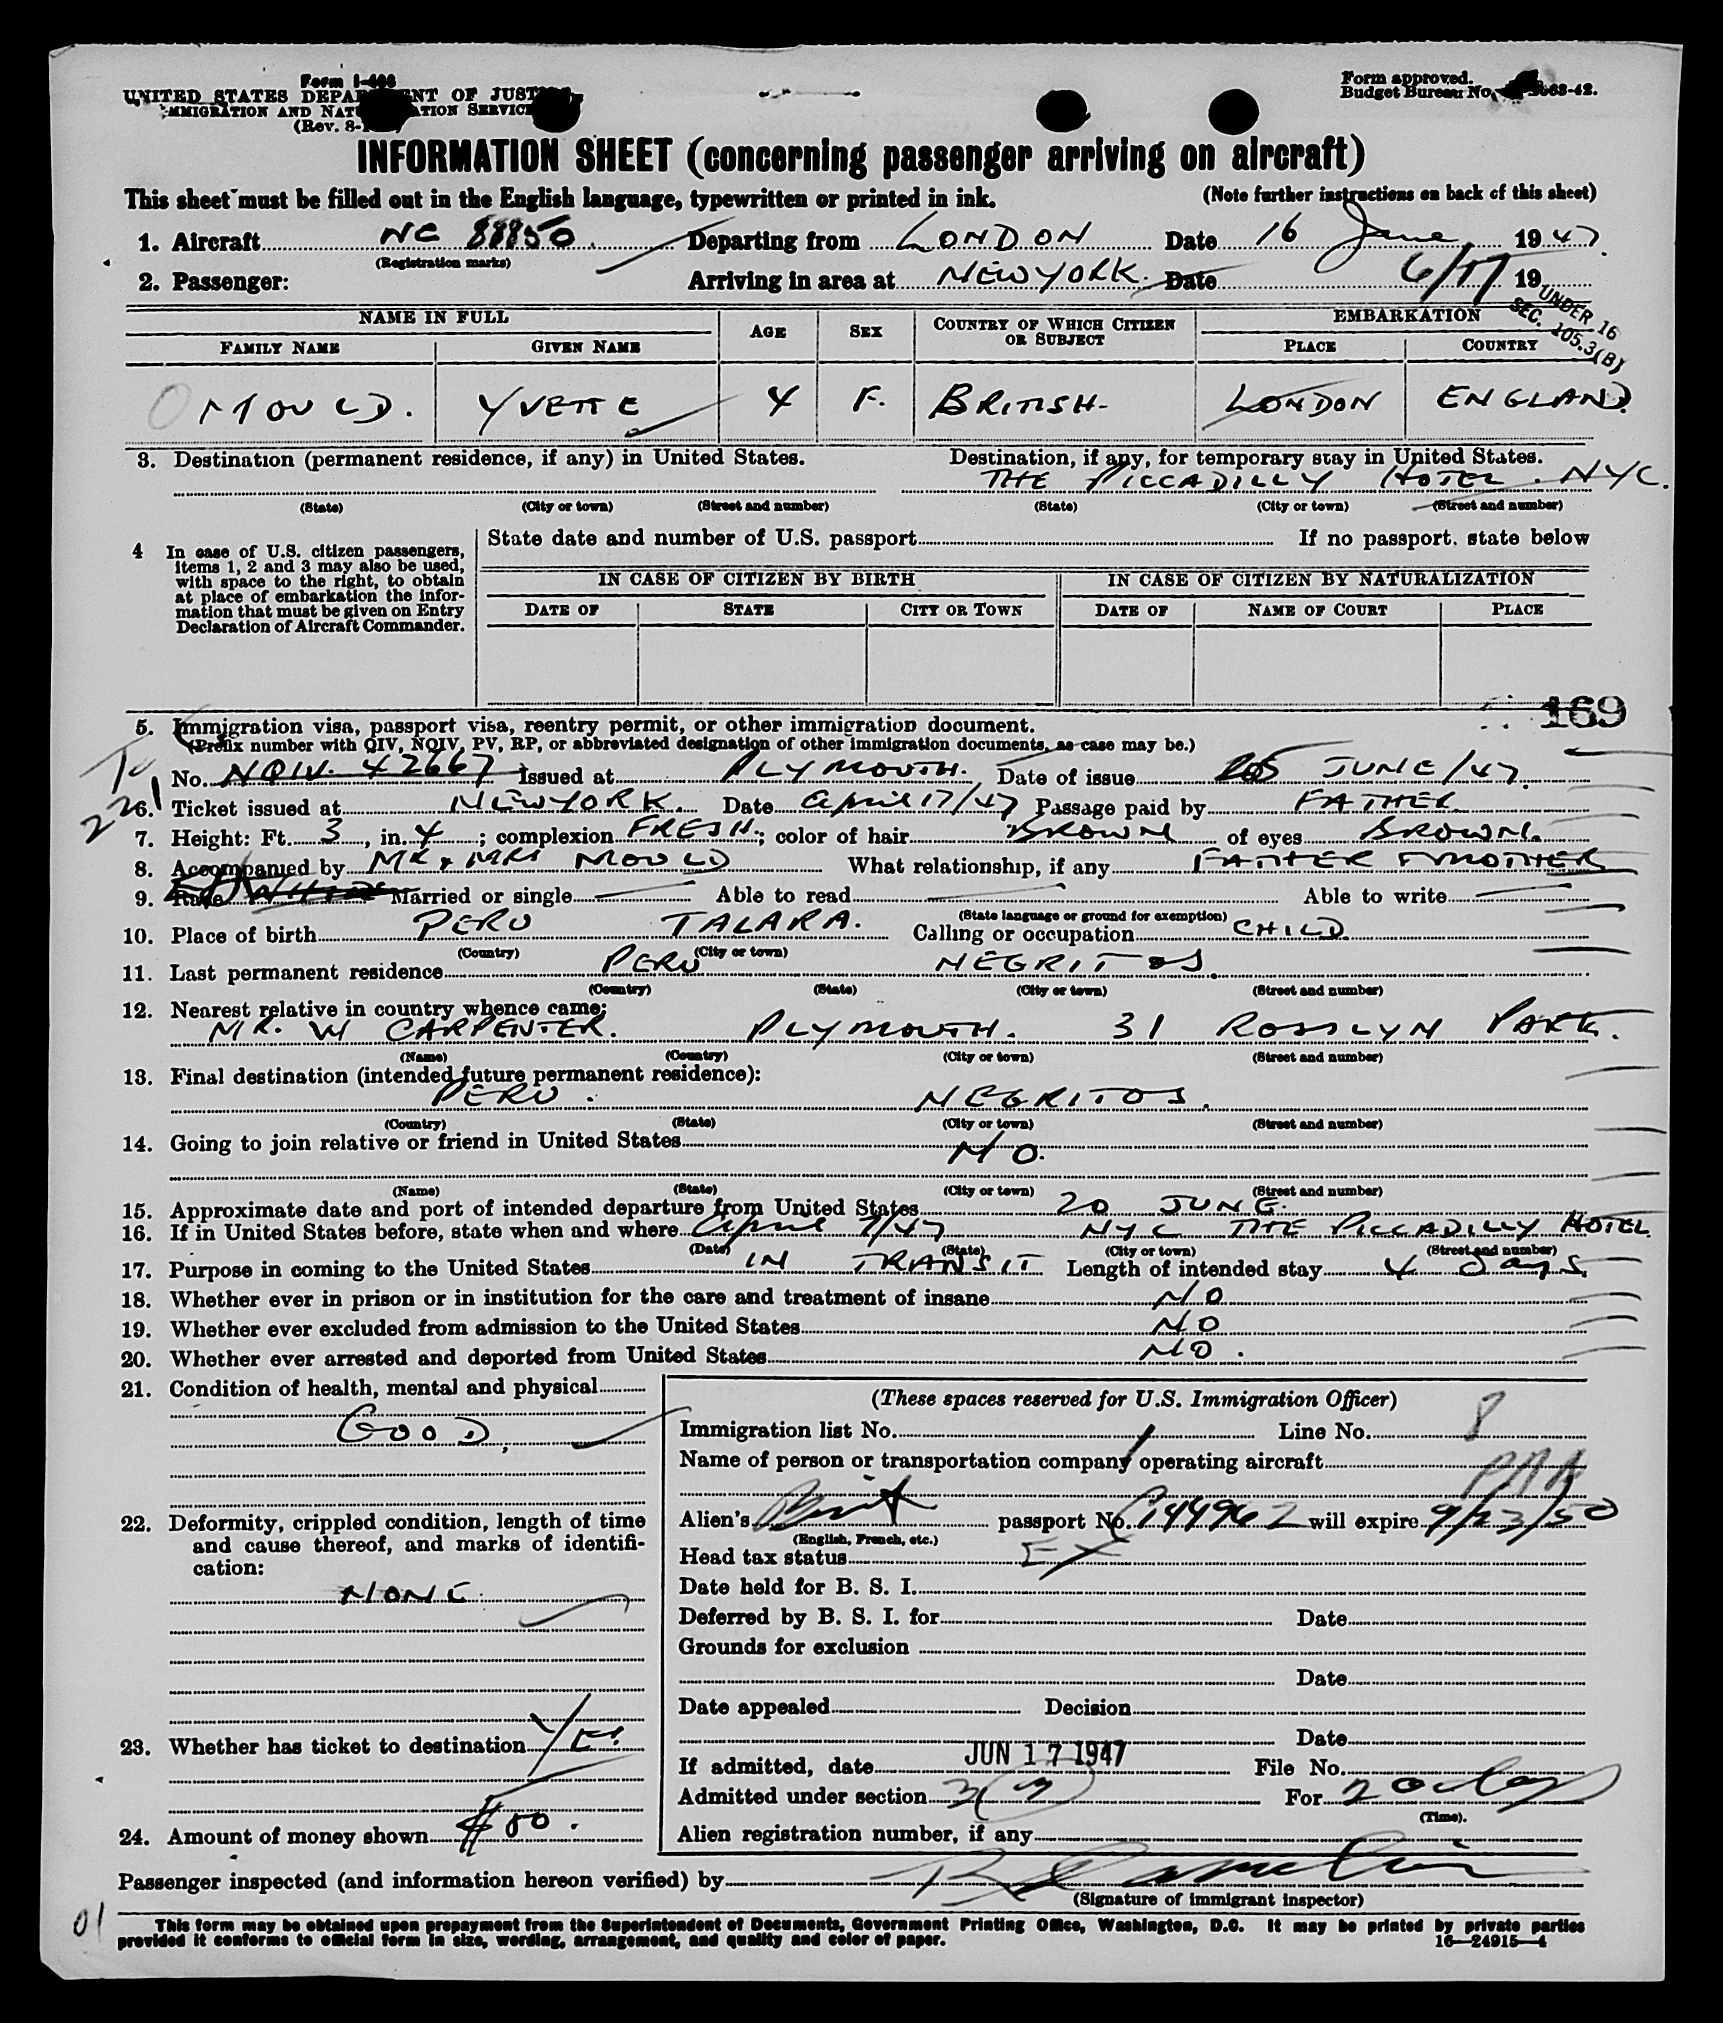 Form I-466
UNITED STATES DEPARTMENT OF JUSTICE
IMMIGRATION AND NATURALIZATION SERVICE
(Rev. 8-
Form approved.
Budget Bureau No. 3-42.
INFORMATION SHEET (concerning passenger arriving on aircraft)
This sheet must be filled out in the English language, typewritten or printed in ink. (Note further instructions on back of this sheet)
1. Aircraft NC 88850. Departing from LONDON Date 16 June, 1947.
(Registration marks)
2. Passenger: Arriving in area at NEW YORK. Date 6/17 19
UNDER 16
SEC. 105.3(B)
NAME IN FULL AGE SEX COUNTRY OF WHICH CITIZEN OR SUBJECT EMBARKATION
FAMILY NAME GIVEN NAME PLACE COUNTRY
MOULD. YVETTE 4 F. BRITISH- LONDON ENGLAND.
3. Destination (permanent residence, if any) in United States. Destination, if any, for temporary stay in United States.
THE PICCADILLY HOTEL. NYC.
(State) (City or town) (Street and number) (State) (City or town) (Street and number)
4 In case of U.S. citizen passengers, items 1, 2 and 3 may also be used, with space to the right, to obtain at place of embarkation the information that must be given on Entry Declaration of Aircraft Commander.
State date and number of U.S. passport If no passport, state below
IN CASE OF CITIZEN BY BIRTH IN CASE OF CITIZEN BY NATURALIZATION
DATE OF STATE CITY OR TOWN DATE OF NAME OF COURT PLACE
169
5. Immigration visa, passport visa, reentry permit, or other immigration document.
(Prefix number with QIV, NQIV, PV, RP, or abbreviated designation of other immigration documents, as case may be.)
No. NQIV. 42667 Issued at PLYMOUTH. Date of issue JUNE/47.
6. Ticket issued at NEW YORK. Date April 17/47 Passage paid by FATHER
7. Height: Ft. 3, in. 4; complexion FRESH.; color of hair BROWN of eyes BROWN.
8. Accompanied by MR & MRS MOULD What relationship, if any FATHER & MOTHER
9. Race Married or single Able to read Able to write
(State language or ground for exemption)
10. Place of birth PERU TALARA. Calling or occupation CHILD
(Country) (City or town)
11. Last permanent residence PERU NEGRITOS.
(Country) (State) (City or town) (Street and number)
12. Nearest relative in country whence came:
MR. W CARPENTER. PLYMOUTH. 31 ROSSLYN PARK.
(Name) (Country) (City or town) (Street and number)
13. Final destination (intended future permanent residence):
PERU. NEGRITOS.
(Country) (State) (City or town) (Street and number)
14. Going to join relative or friend in United States
NO.
(Name) (State) (City or town) (Street and number)
15. Approximate date and port of intended departure from United States 20 JUNE.
16. If in United States before, state when and where April 7/47 NYC THE PICCADILLY HOTEL.
(Date) (State) (City or town) (Street and number)
17. Purpose in coming to the United States IN TRANSIT Length of intended stay 4 days
18. Whether ever in prison or in institution for the care and treatment of insane NO
19. Whether ever excluded from admission to the United States NO
20. Whether ever arrested and deported from United States NO.
21. Condition of health, mental and physical
GOOD.
22. Deformity, crippled condition, length of time and cause thereof, and marks of identification:
NONE
23. Whether has ticket to destination YES.
24. Amount of money shown $50.
(These spaces reserved for U.S. Immigration Officer)
Immigration list No. 1 Line No. 8
Name of person or transportation company operating aircraft
PAA
Alien's Brit passport No. C144962 will expire 9/23/50
(English, French, etc.)
Head tax status EX
Date held for B. S. I.
Deferred by B. S. I. for Date
Grounds for exclusion
Date
Date appealed Decision
Date
If admitted, date JUN 17 1947 File No.
Admitted under section 3( ) For 20 days
(Time).
Alien registration number, if any
Passenger inspected (and information hereon verified) by
(Signature of immigrant inspector)
01
This form may be obtained upon prepayment from the Superintendent of Documents, Government Printing Office, Washington, D.C. It may be printed by private parties
provided it conforms to official form in size, wording, arrangement, and quality and color of paper. 16—24915-4